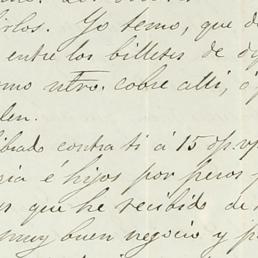 irlos. Yo temo, que d
entre los billetes de d
omo ntro. cobre alli, ó
len.
ibrado contra ti á 15 d/v
ia é hijos por pesos
que he recibido de
muy buen negocio y p